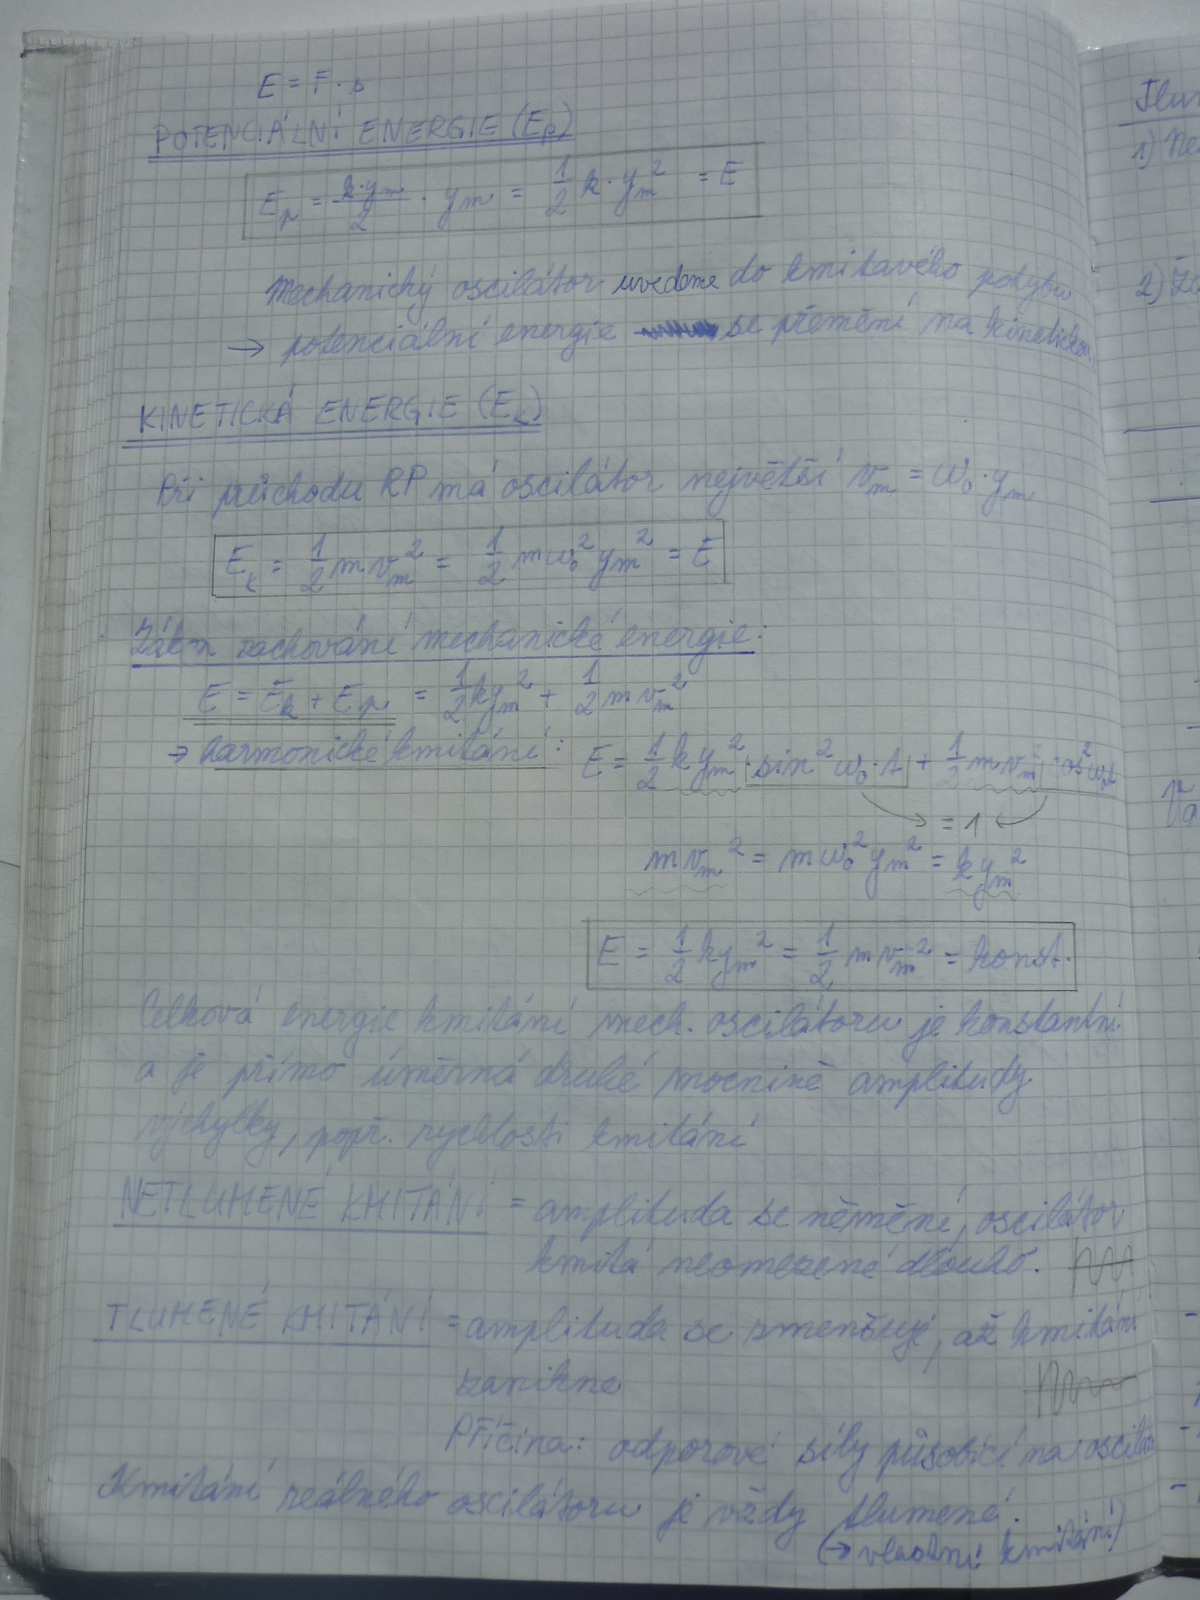 E = F · s
POTENCIÁLNÍ ENERGIE (Ep)
Ep = k·ym/2 · ym = 1/2 k · ym² = E
Mechanický oscilátor uvedeme do kmitavého pohybu
→ potenciální energie se přemění na kinetickou
KINETICKÁ ENERGIE (Ek)
Při průchodu RP má oscilátor největší vm = ω₀ · ym
Ek = 1/2 m vm² = 1/2 m ω₀² ym² = E
Zákon zachování mechanické energie:
E = Ek + Ep = 1/2 k ym² + 1/2 m vm²
→ harmonické kmitání: E = 1/2 k ym² · sin² ω₀ · t + 1/2 m vm² cos² ω₀t
= 1
m vm² = m ω₀² ym² = k ym²
E = 1/2 k ym² = 1/2 m vm² = konst.
Celková energie kmitání mech. oscilátoru je konstantní
a je přímo úměrná druhé mocnině amplitudy
výchylky, popř. rychlosti kmitání
NETLUMENÉ KMITÁNÍ = amplituda se němění, oscilátor
kmitá neomezeně dlouho.
TLUMENÉ KMITÁNÍ = amplituda se zmenšuje, až kmitání
zanikne
Příčina: odporové síly působící na oscilát
Kmitání reálného oscilátoru je vždy tlumené.
(→ vlastní kmitání)
Tlu
1) Ne
2)